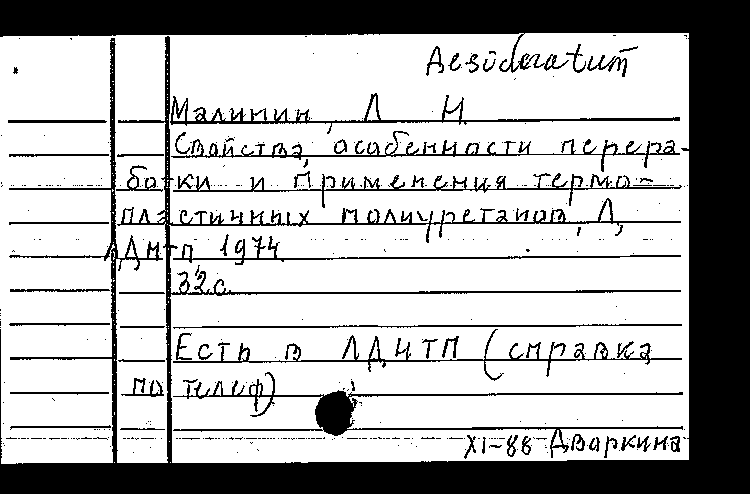 Desideratum
Малинин, Л Н
Свойства, особенности перера-
ботки и применения термо-
пластичных полиуретанов, Л,
ЛДНТП, 1974
32 с.
Есть в ЛДНТП (справка
по телеф)
XI-88 Дворкина